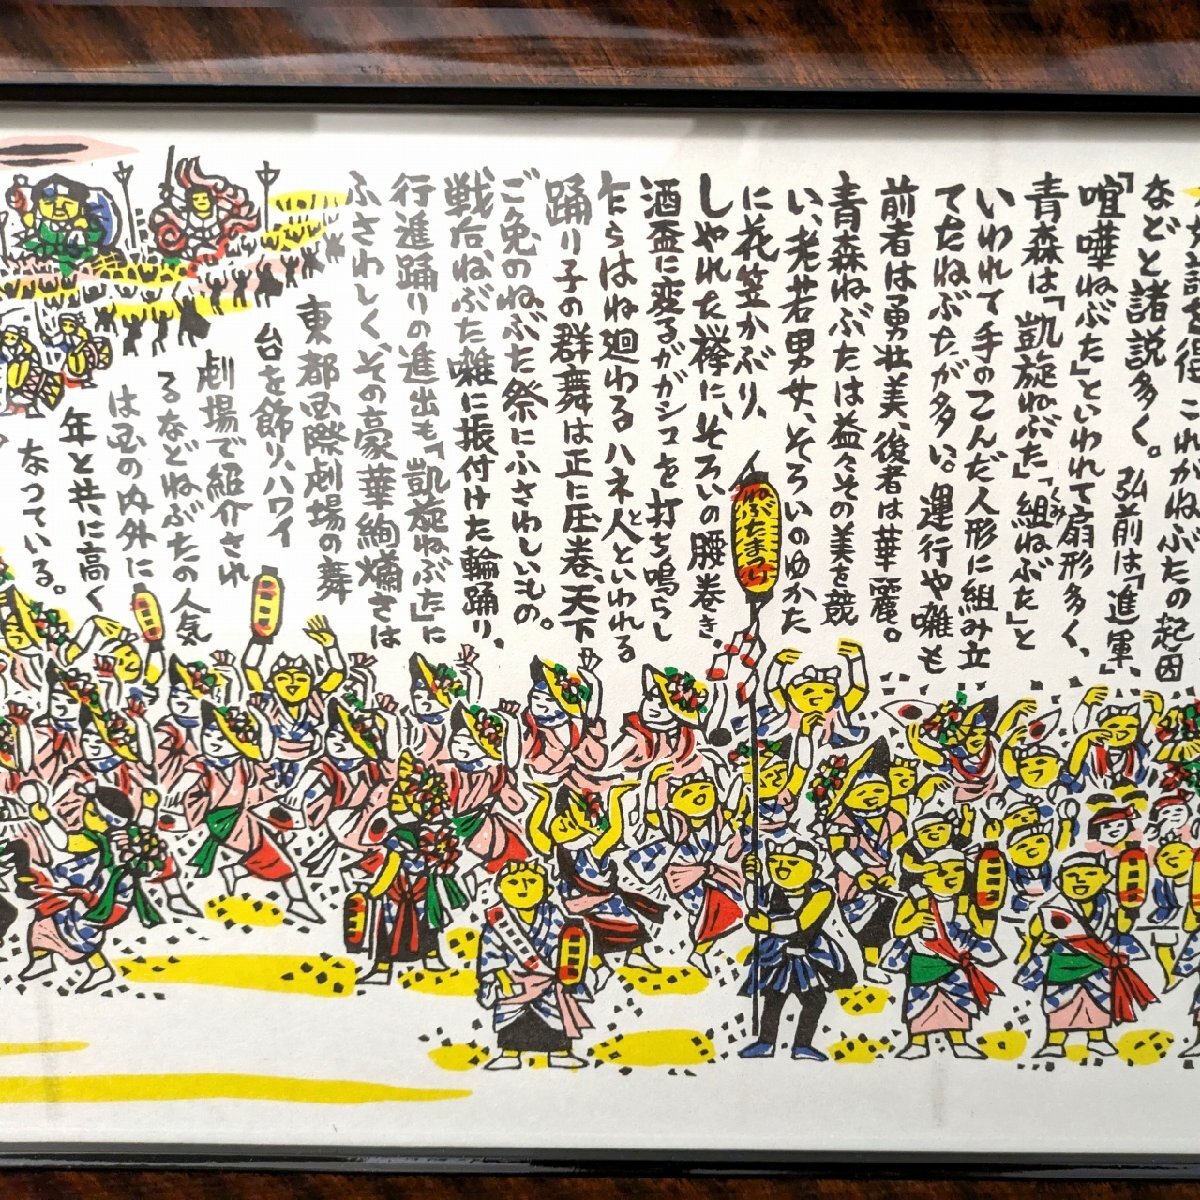 これがねぶたの起因
などと諸説多く。弘前は「進軍」、
「喧嘩ねぶた」といわれて扇形多く、
青森は「凱旋ねぶた」「組ねぶた」と
くみ
いわれて手のこんだ人形に組み立
てたねぶたが多い。運行や囃も
前者は勇壮美、後者は華麗。
青森ねぶたは益々その美を競
い、老若男女、そろいのゆかた
に花笠かぶり、
しやれた襷に、そろいの腰巻き
酒盃に変るガガシコを打ち鳴らし
乍らはね廻わるハネ人といわれる
と
踊り子の群舞は正に圧巻、天下
ご免のねぶた祭にふさわしいもの。
戦后、ねぶた囃に振付けた輪踊り、
行進踊りの進出も「凱旋ねぶた」に
ふさわしく、その豪華絢爛さは
東都国際劇場の舞
台を飾り、ハワイ
劇場で紹介され
るなどねぶたの人気
は国の内外に
年と共に高く
なっている。
ねぶたまつり